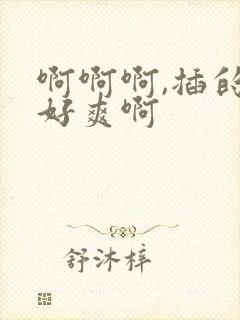 啊啊啊,插的
好爽啊
舒沐梓